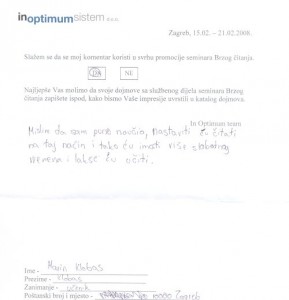 inoptimum sistem d.o.o.
Zagreb, 15.02. – 21.02.2008.
Slažem se da se moj komentar koristi u svrhu promocije seminara Brzog čitanja.
DA NE
Najljepše Vas molimo da svoje dojmove sa službenog dijela seminara Brzog
čitanja zapišete ispod, kako bismo Vaše impresije uvrstili u katalog dojmova.
In Optimum team
Mislim da sam puno naučio, nastaviti ću čitati
na taj način i tako ću imati više slobodnog
vremena i lakše ću učiti.
Ime - Marin
Prezime -
Zanimanje - učenik
Poštanski broj i mjesto - 10000 Zagreb